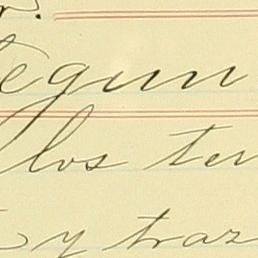 Segun
los ter
y traz